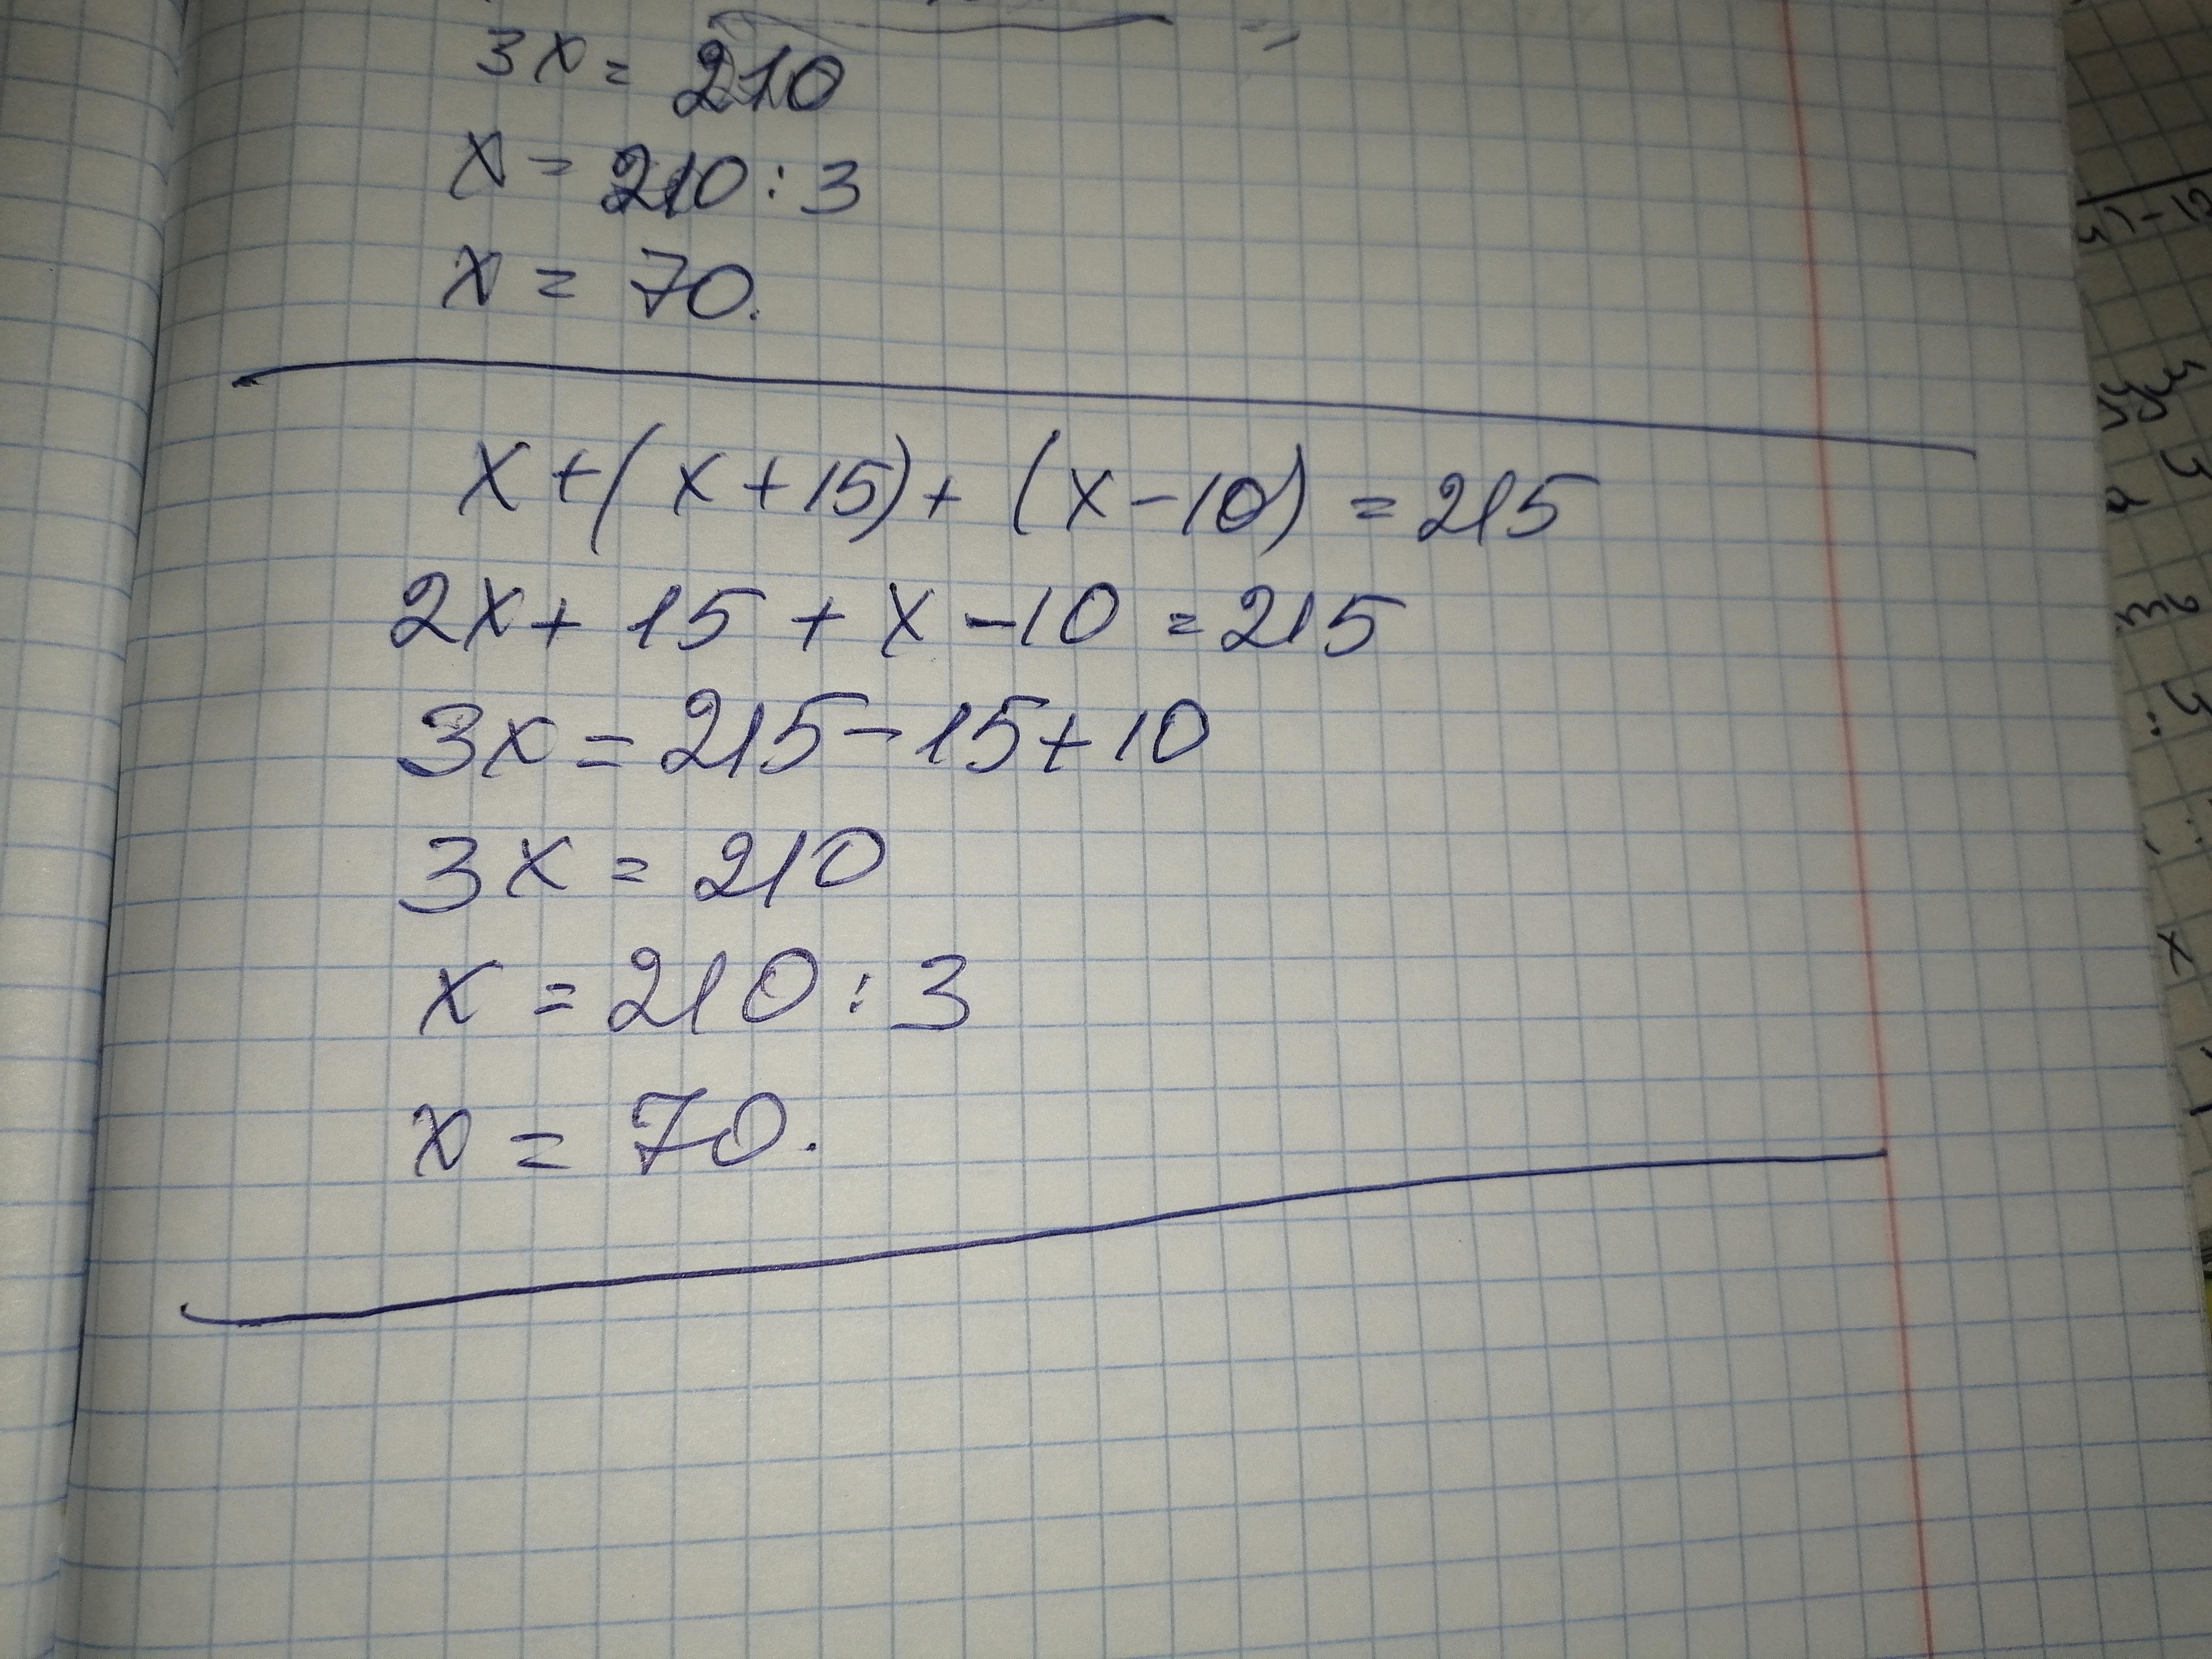 3x = 210
x = 210 : 3
x = 70.
x + (x + 15) + (x - 10) = 215
2x + 15 + x - 10 = 215
3x = 215 - 15 + 10
3x = 210
x = 210 : 3
x = 70.